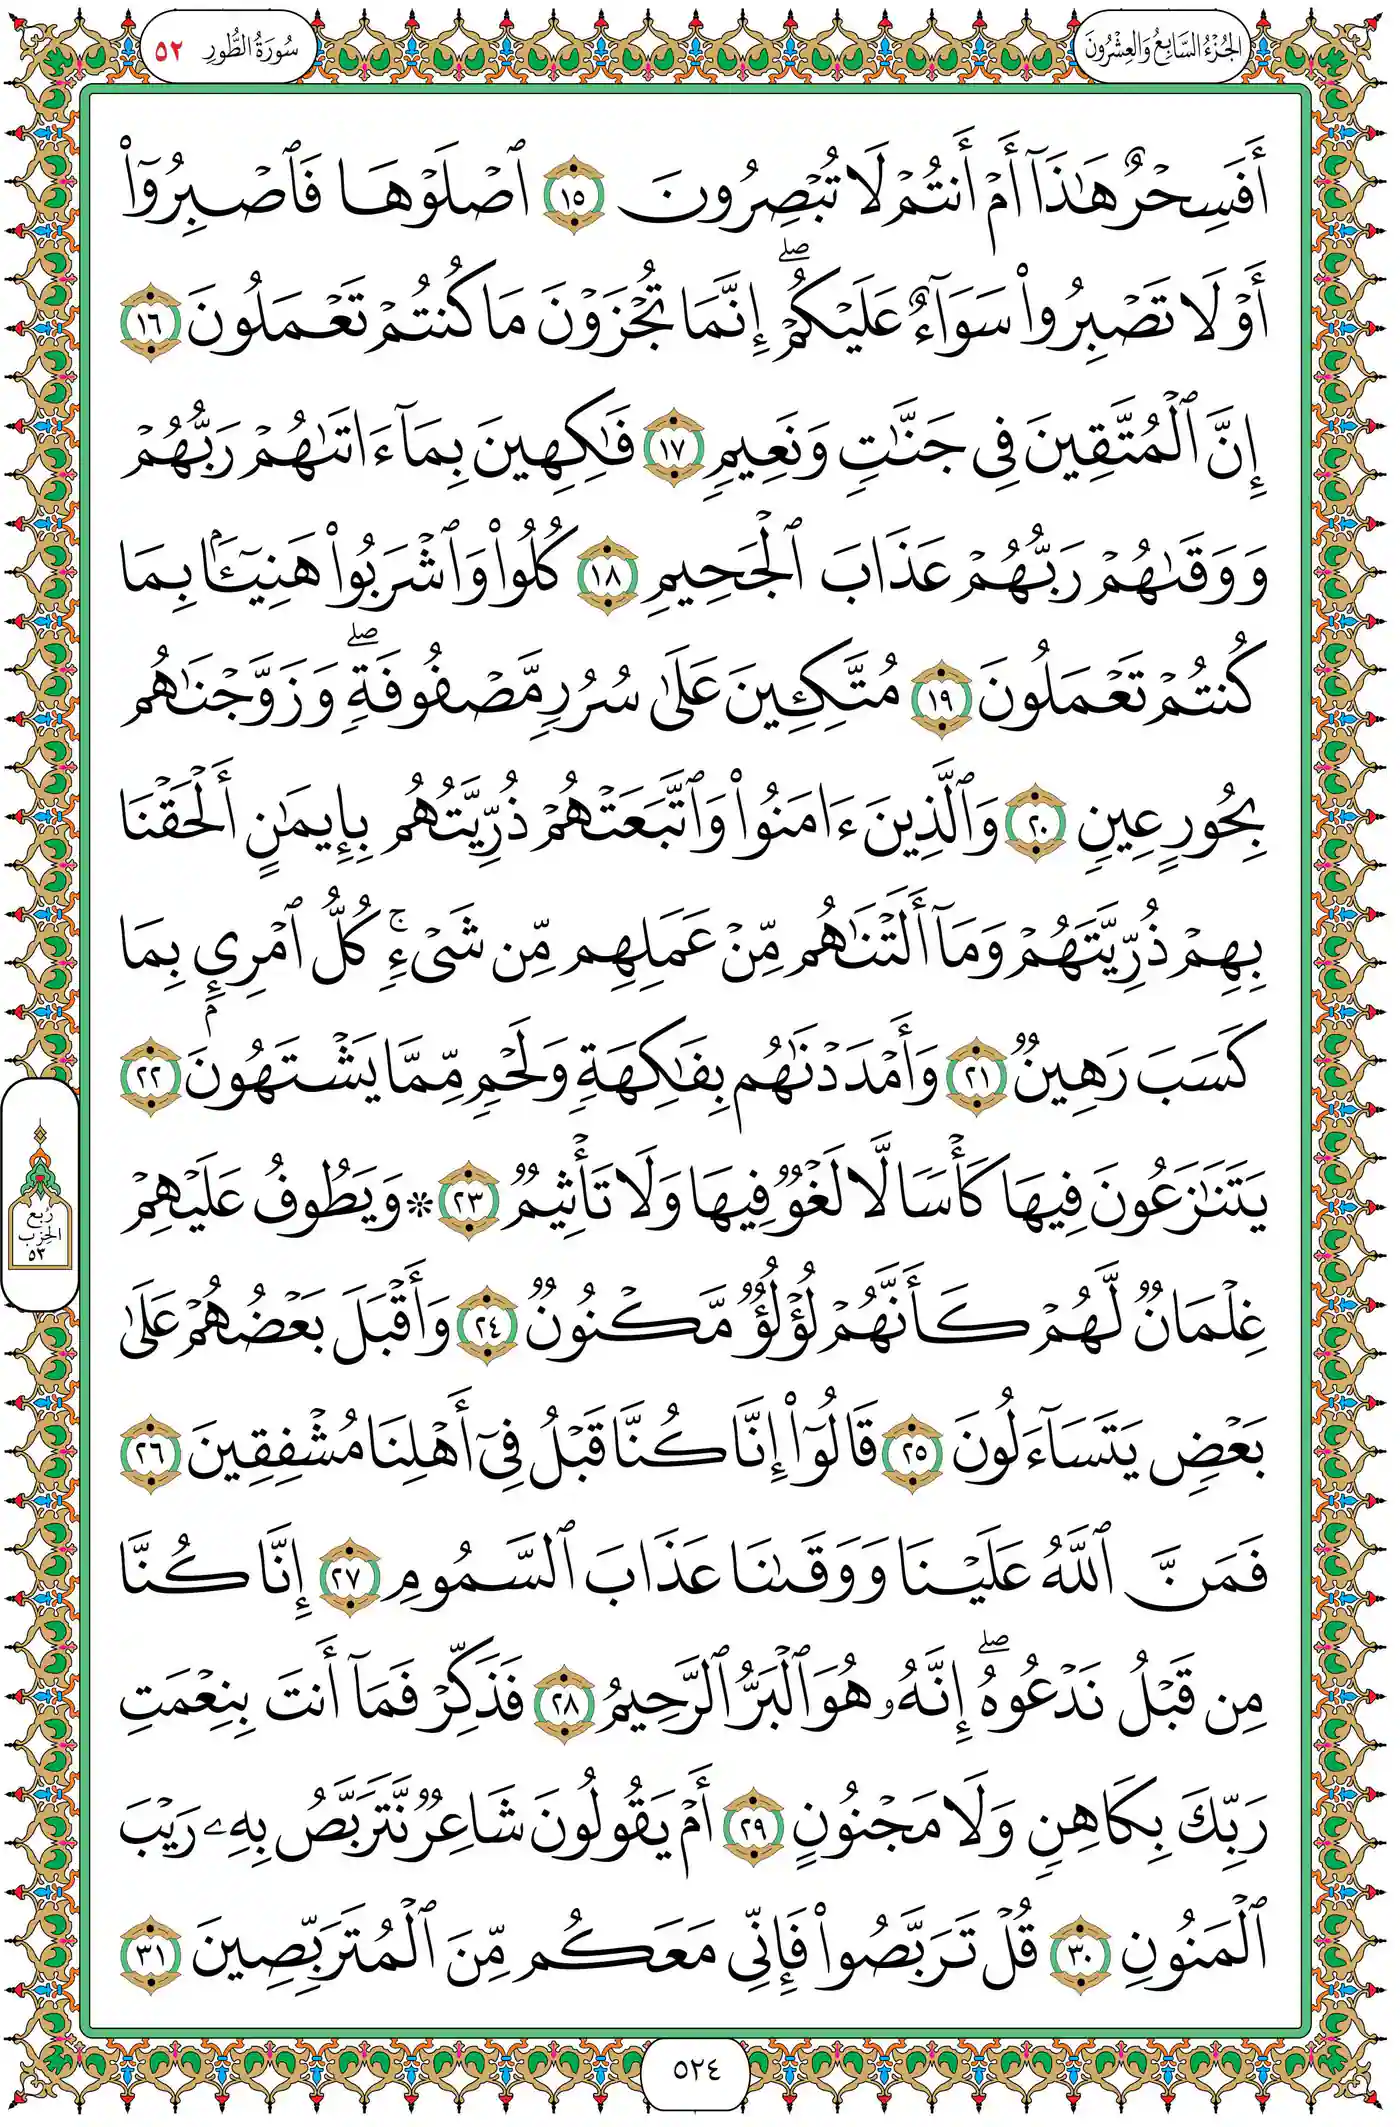 الجُزْءُ السَّابِعُ وَالعِشْرُونَ
سُورَةُ الطُّورِ ٥٢
أَفَسِحْرٌ هَٰذَآ أَمْ أَنتُمْ لَا تُبْصِرُونَ ١٥ ٱصْلَوْهَا فَٱصْبِرُوٓا۟
أَوْ لَا تَصْبِرُوا۟ سَوَآءٌ عَلَيْكُمْ ۖ إِنَّمَا تُجْزَوْنَ مَا كُنتُمْ تَعْمَلُونَ ١٦
إِنَّ ٱلْمُتَّقِينَ فِى جَنَّٰتٍ وَنَعِيمٍ ١٧ فَٰكِهِينَ بِمَآ ءَاتَىٰهُمْ رَبُّهُمْ
وَوَقَىٰهُمْ رَبُّهُمْ عَذَابَ ٱلْجَحِيمِ ١٨ كُلُوا۟ وَٱشْرَبُوا۟ هَنِيٓـًٔۢا بِمَا
كُنتُمْ تَعْمَلُونَ ١٩ مُتَّكِـِٔينَ عَلَىٰ سُرُرٍ مَّصْفُوفَةٍ ۖ وَزَوَّجْنَٰهُم
بِحُورٍ عِينٍ ٢٠ وَٱلَّذِينَ ءَامَنُوا۟ وَٱتَّبَعَتْهُمْ ذُرِّيَّتُهُم بِإِيمَٰنٍ أَلْحَقْنَا
بِهِمْ ذُرِّيَّتَهُمْ وَمَآ أَلَتْنَٰهُم مِّنْ عَمَلِهِم مِّن شَىْءٍ ۚ كُلُّ ٱمْرِئٍۭ بِمَا
كَسَبَ رَهِينٌ ٢١ وَأَمْدَدْنَٰهُم بِفَٰكِهَةٍ وَلَحْمٍ مِّمَّا يَشْتَهُونَ ٢٢
يَتَنَٰزَعُونَ فِيهَا كَأْسًا لَّا لَغْوٌ فِيهَا وَلَا تَأْثِيمٌ ٢٣ * وَيَطُوفُ عَلَيْهِمْ
رُبع الحِزْب ٥٣
غِلْمَانٌ لَّهُمْ كَأَنَّهُمْ لُؤْلُؤٌ مَّكْنُونٌ ٢٤ وَأَقْبَلَ بَعْضُهُمْ عَلَىٰ
بَعْضٍ يَتَسَآءَلُونَ ٢٥ قَالُوٓا۟ إِنَّا كُنَّا قَبْلُ فِىٓ أَهْلِنَا مُشْفِقِينَ ٢٦
فَمَنَّ ٱللَّهُ عَلَيْنَا وَوَقَىٰنَا عَذَابَ ٱلسَّمُومِ ٢٧ إِنَّا كُنَّا
مِن قَبْلُ نَدْعُوهُ ۖ إِنَّهُۥ هُوَ ٱلْبَرُّ ٱلرَّحِيمُ ٢٨ فَذَكِّرْ فَمَآ أَنتَ بِنِعْمَتِ
رَبِّكَ بِكَاهِنٍ وَلَا مَجْنُونٍ ٢٩ أَمْ يَقُولُونَ شَاعِرٌ نَّتَرَبَّصُ بِهِۦ رَيْبَ
ٱلْمَنُونِ ٣٠ قُلْ تَرَبَّصُوا۟ فَإِنِّى مَعَكُم مِّنَ ٱلْمُتَرَبِّصِينَ ٣١
٥٢٤